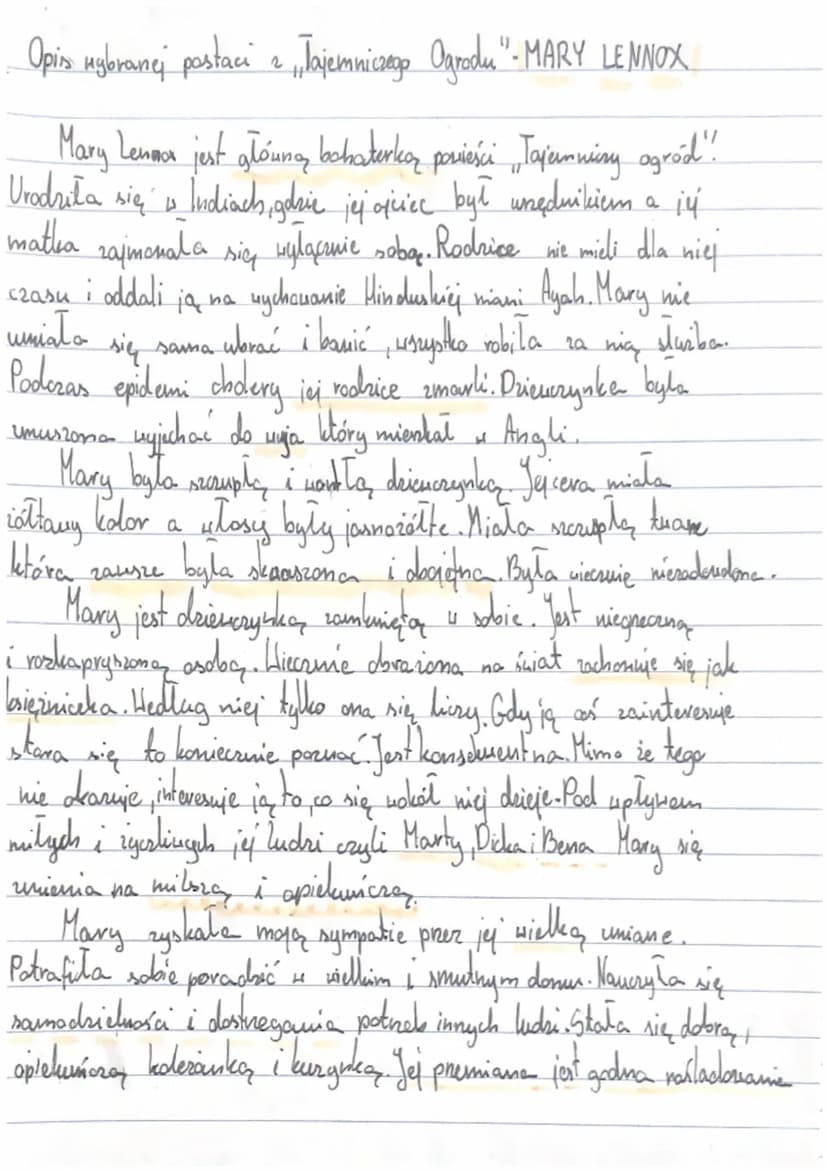 Opis wybranej postaci z „Tajemniczego Ogrodu"- MARY LENNOX
Mary Lennox jest główną bohaterką powieści „Tajemniczy ogród".
Urodziła się w Indiach, gdzie jej ojciec był urzędnikiem a jej
matka zajmowała się wyłącznie sobą. Rodzice nie mieli dla niej
czasu i oddali ją na wychowanie Hinduskiej niani Ayah. Mary nie
umiała się sama ubrać i bawić, wszystko robiła za nią służba.
Podczas epidemi cholery jej rodzice zmarli. Dziewczynka była
zmuszona wyjechać do wuja który mieszkał w Angli.
Mary była szczupłą i wątłą dziewczynką. Jej cera miała
żółtawy kolor a włosy były jasnożółte. Miała szczupłą twarz
która zawsze była skwaszona i obojętna. Była wiecznie niezadowolona.
Mary jest dziewczynką zamkniętą w sobie. Jest niegrzeczną
i rozkapryszoną osobą. Wiecznie obrażona na świat zachowuje się jak
księżniczka. Według niej tylko ona się liczy. Gdy ją coś zainteresuje
stara się to koniecznie poznać. Jest konsekwentna. Mimo że tego
nie okazuje, interesuje ją to, co się wokół niej dzieje. Pod wpływem
miłych i życzliwych jej ludzi czyli Marty, Dicka i Bena Mary się
zmienia na milszą i opiekuńczą.
Mary zyskała moją sympatie przez jej wielką zmiane.
Potrafiła sobie poradzić w wielkim i smutnym domu. Nauczyła się
samodzielności i dostrzegania potrzeb innych ludzi. Stała się dobrą,
opiekuńczą koleżanką i kuzynką. Jej przemiana jest godna naśladowania